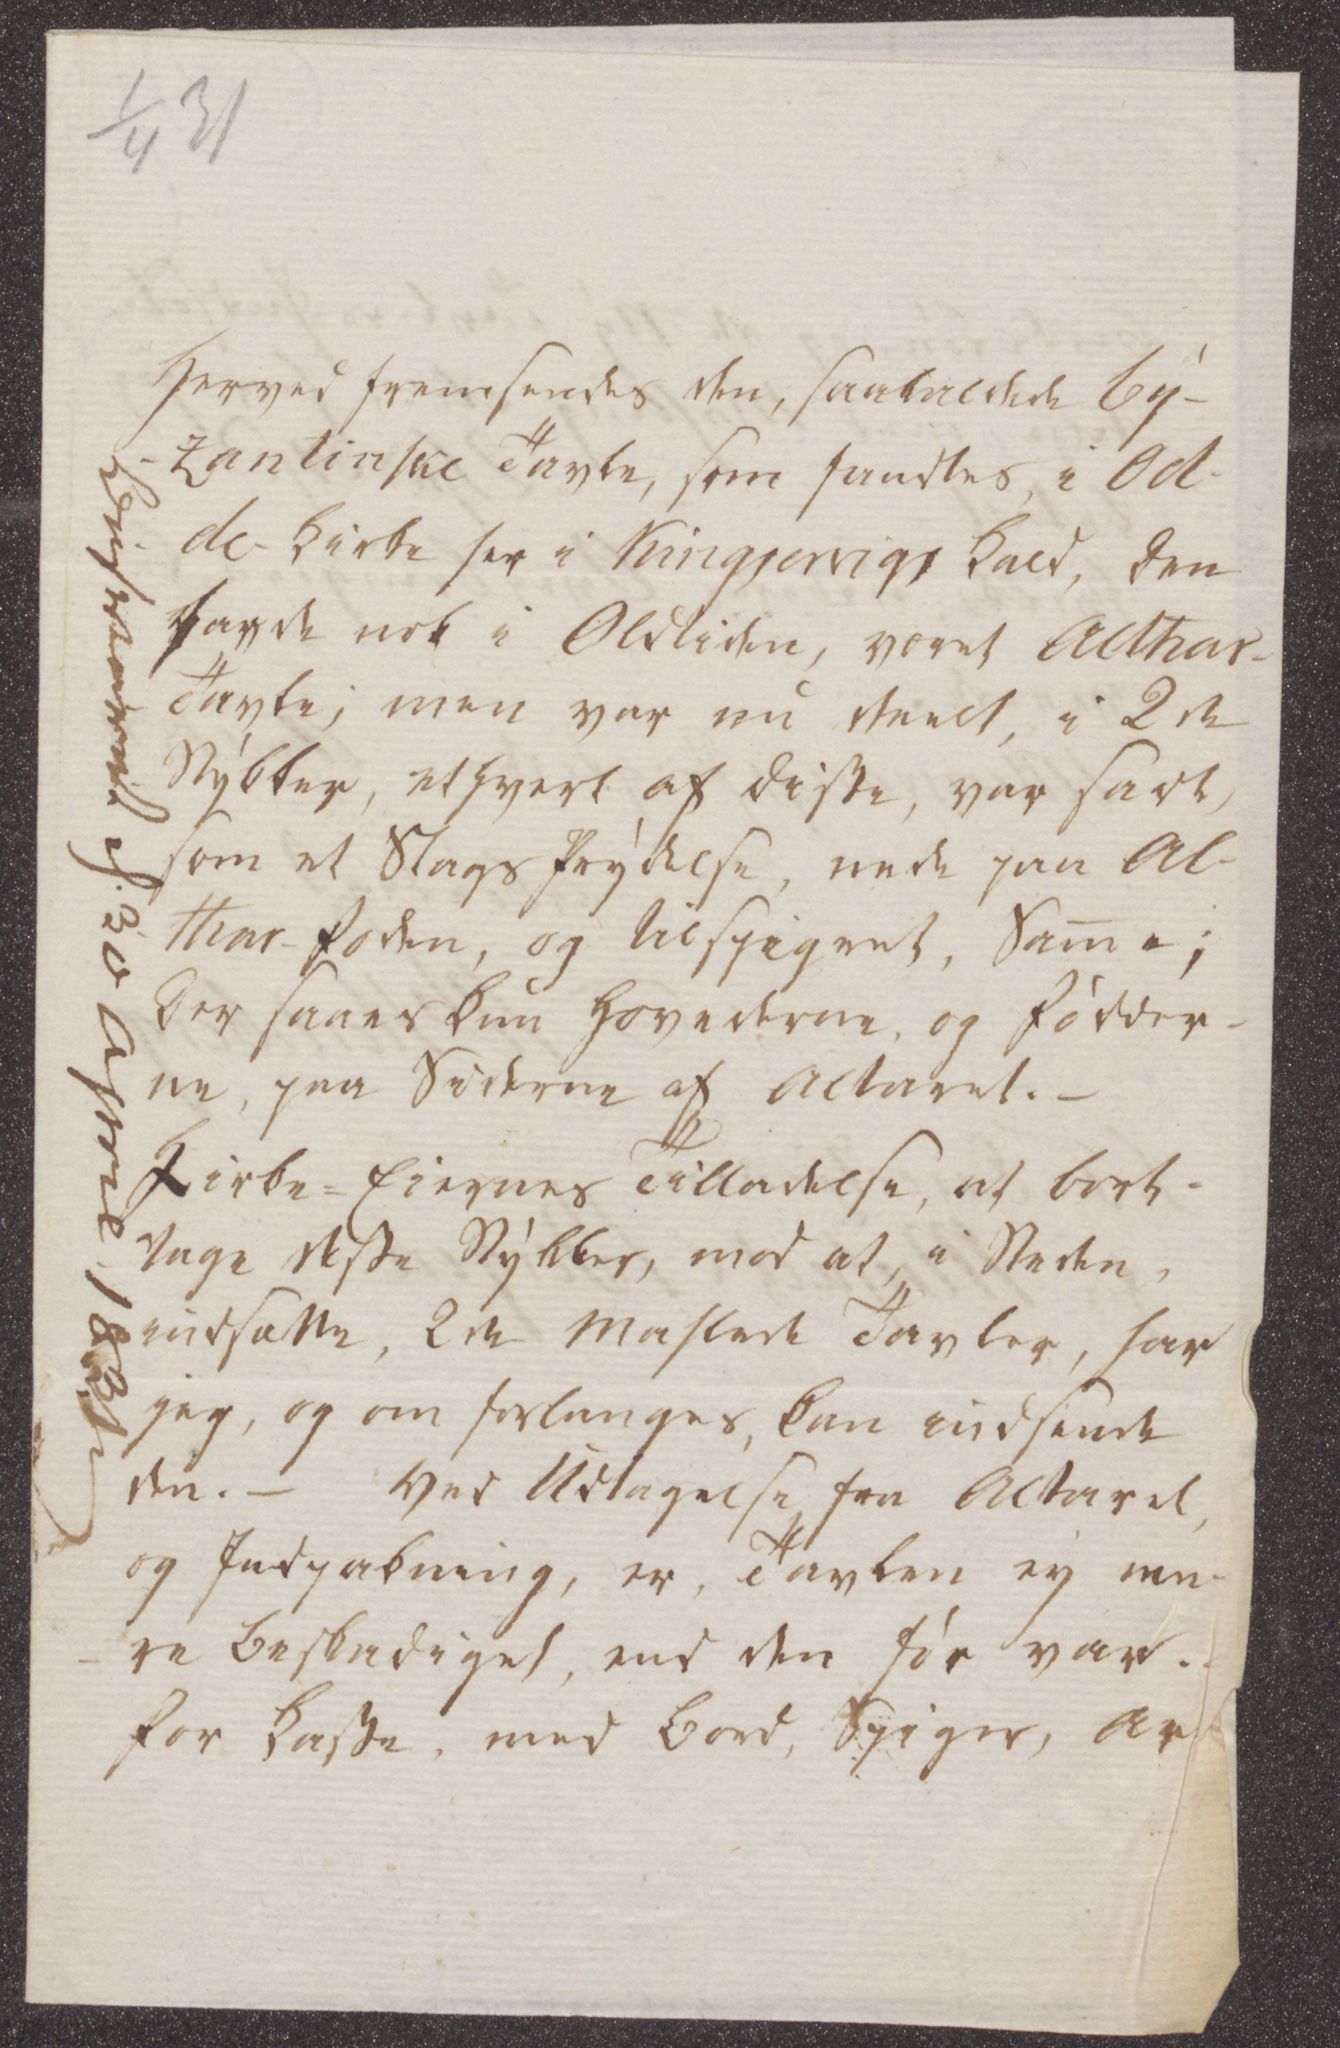 1/4 31
Herved fremsendes den, saakaldede by-
-zantinske Tavle, som fandtes, i Od-
de-Kirke her i Kingservigs Kald, den
havde nok i Oldtiden, været Althar-
Tavle; men var nu deelt, i 2de
Stykker, ethvert af disse, var sadt,
som et Slags Prydelse, nede paa Al-
thar-foden, og tilspigret, Sam̄e;
Der saaes kun Hovederne, og fødder-
ne, paa Siderne af Altaret. -
Kirke-Eiernes Tilladelse, at bort-
tage disse Stykker, mod at, i Steden,
indsætte, 2de Malede Tavler, har
jeg, og om forlanges, kan indsende
den. - Ved Udtagelse fra Altaret,
og Indpakning, er, Tavlen ey me-
re beskadiget, end den før var.
for Kasse, med Bord, Spiger, Ar-
Besvaret d. 30 April 1831